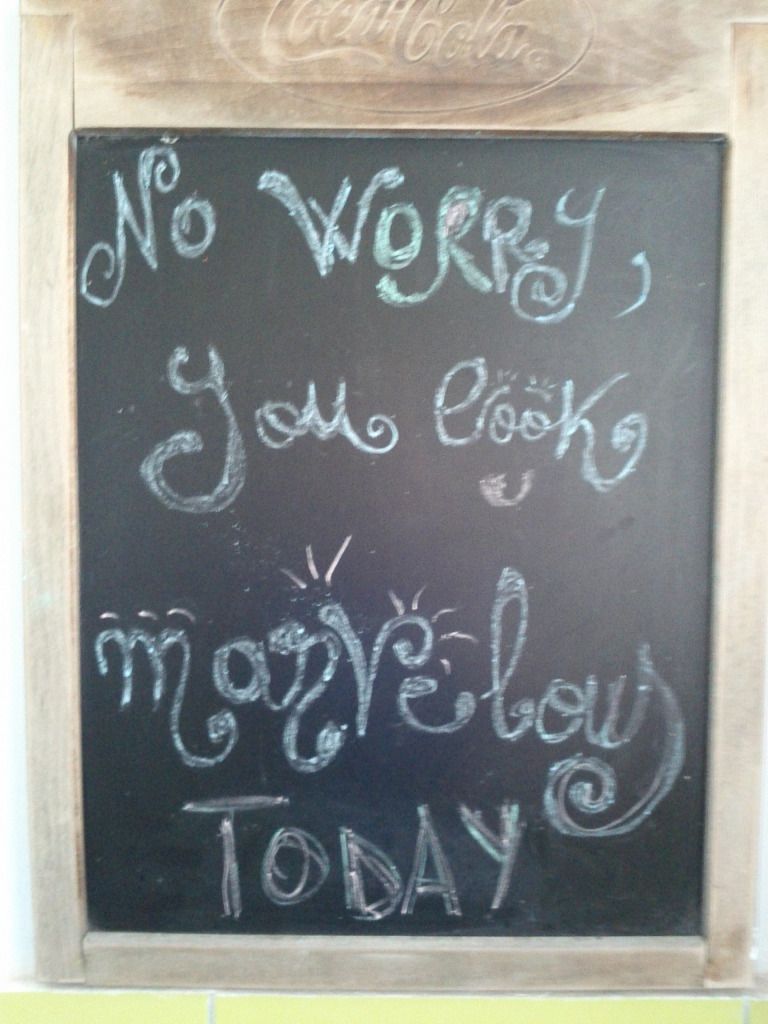 Coca-Cola
No WORRY,
you look
marvelous
TODAY